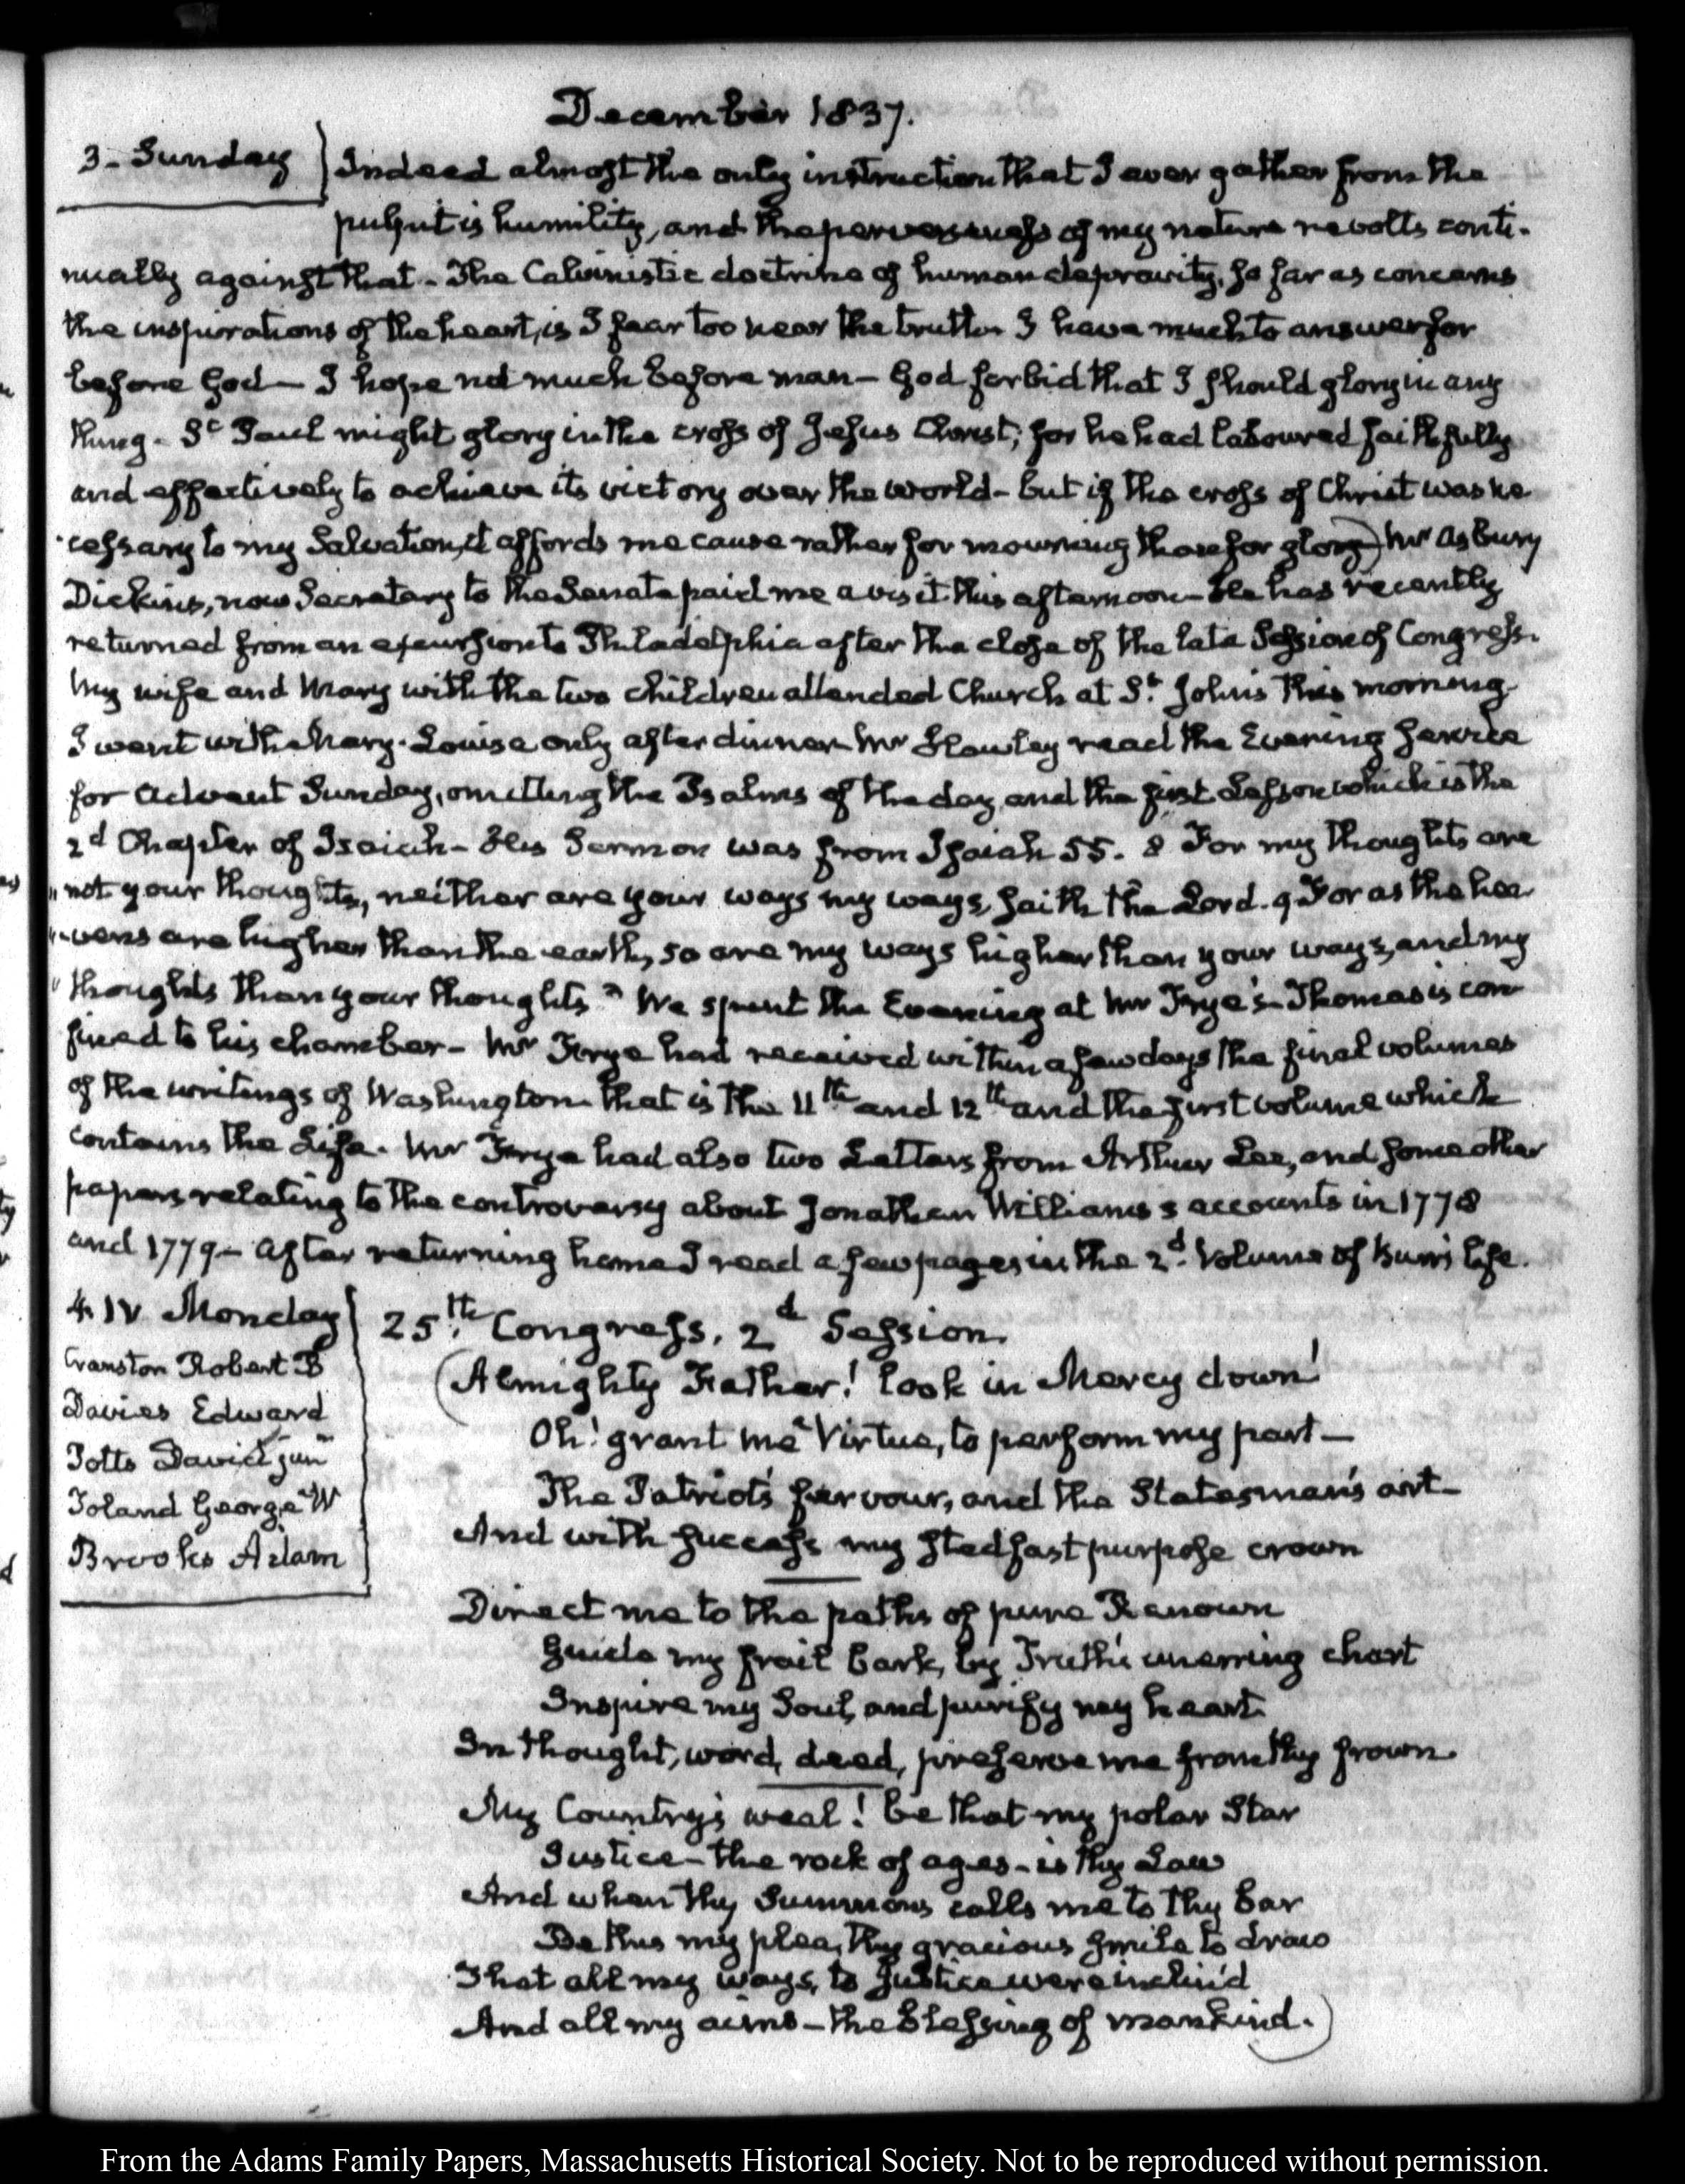 December 1837.
3. Sunday
Indeed almost the only instruction that I ever gather from the
pulpit is humility, and the perverseness of my nature revolts conti-
nually against that. The Calvinistic doctrine of human depravity, so far as concerns
the inspirations of the heart, is I fear too near the truth. I have much to answer for
before God— I hope not much before man— God forbid that I should glory in any
thing. St. Paul might glory in the cross of Jesus Christ; for he had laboured faithfully
and effectively to achieve its victory over the world— but if the cross of Christ was ne
cessary to my Salvation, it affords me cause rather for mourning than for glory) Mr Asbury
Dickins, now Secretary to the Senate paid me a visit this afternoon— He has recently
returned from an excursion to Philadelphia after the close of the late Session of Congress.
My wife and Mary with the two children attended Church at St. John's this morning.
I went with Mary-Louisa only after dinner Mr Hawley read the Evening service
for Advent Sunday, omitting the Psalms of the day and the first Lesson which is the
2d Chapter of Isaiah— His Sermon was from Isaiah 55. 8 For my thoughts are
"not your thoughts, neither are your ways my ways, saith the Lord. 9 For as the hea
"vens are higher than the earth, so are my ways higher than your ways, and my
"thoughts than your thoughts" We spent the Evening at Mr Frye's— Thomas is con
fined to his chamber— Mr Frye had received within a few days the final volumes
of the writings of Washington that is the 11th and 12th and the first volume which
contains the Life. Mr Frye had also two Letters from Arthur Lee, and some other
papers relating to the controversy about Jonathan Williams's accounts in 1778
and 1779— After returning home I read a few pages in the 2d. Volume of Burr's life.
4. IV. Monday
Cranston Robert B
Davies Edward
Potts David junr
Toland George W
Brooks Adam
25th. Congress, 2d Session.
(Almighty Father! look in Mercy down!
Oh! grant me Virtue, to perform my part—
The Patriot's fervour, and the Statesman's art—
And with success my stedfast purpose crown
Direct me to the paths of pure Renown
Guide my frail bark, by Truth's unerring chart
Inspire my Soul, and purify my heart.
In thought, word, deed, preserve me from thy frown.
My Country's weal! be that my polar Star
Justice— the rock of ages— is thy Law
And when thy Summons calls me to thy bar
Be this my plea, thy gracious smile to draw
That all my ways, to Justice were inclin'd
And all my aims— the blessing of mankind.)
From the Adams Family Papers, Massachusetts Historical Society. Not to be reproduced without permission.